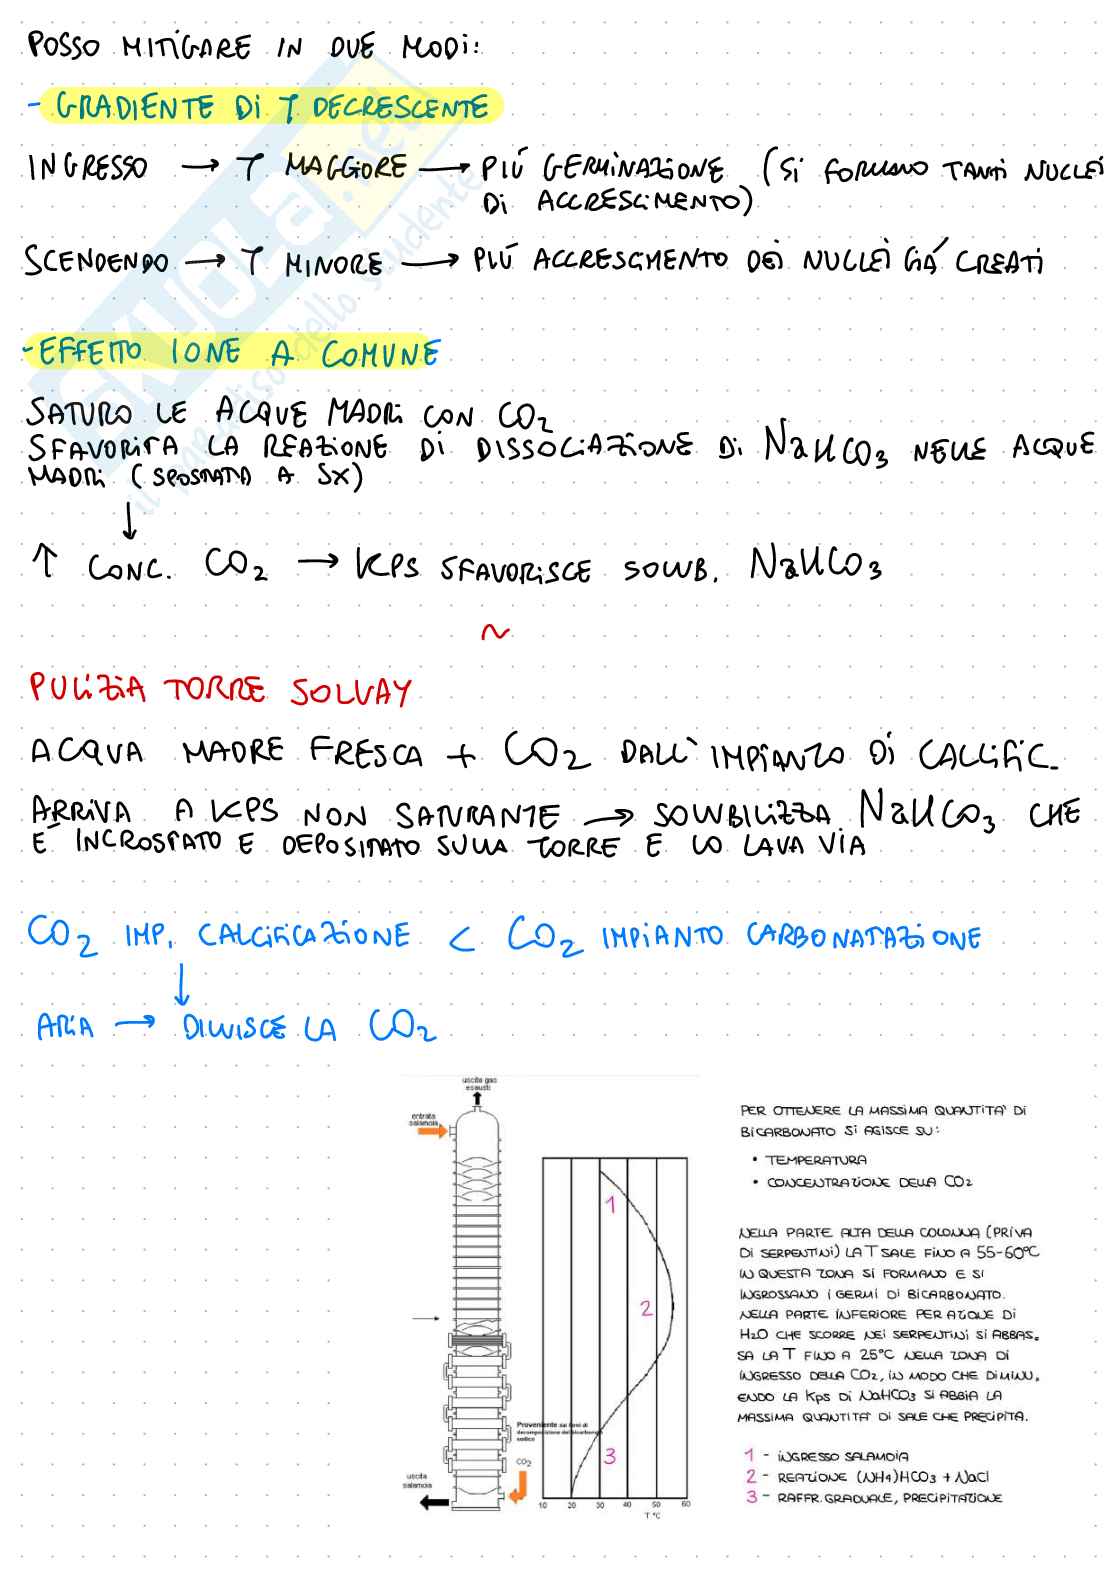 POSSO MITIGARE IN DUE MODI:
- GRADIENTE DI T DECRESCENTE
INGRESSO → T MAGGIORE → PIÚ GERMINAZIONE (SI FORMANO TANTI NUCLEI
DI ACCRESCIMENTO)
SCENDENDO → T MINORE → PIÚ ACCRESCIMENTO DEI NUCLEI GIÁ CREATI
- EFFETTO IONE A COMUNE
SATURO LE ACQUE MADRI CON CO2
SFAVORITA LA REAZIONE DI DISSOCIAZIONE DI NaHCO3 NELLE ACQUE
MADRI (SPOSTATA A SX)
↓
↑ CONC. CO2 → KPS SFAVORISCE SOLUB. NaHCO3
~
PULIZIA TORRE SOLVAY
ACQUA MADRE FRESCA + CO2 DALL'IMPIANTO DI CALCIFIC.
ARRIVA A KPS NON SATURANTE → SOLUBILIZZA NaHCO3 CHE
É INCROSTATO E DEPOSITATO SULLA TORRE E LO LAVA VIA
CO2 IMP. CALCIFICAZIONE < CO2 IMPIANTO CARBONATAZIONE
↓
ARIA → DILUISCE LA CO2
uscita gas
esausti
entrata
salamoia
Proveniente sai forni di
decomposizione del bicarbonato
sodico
CO2
uscita
salamoia
1
2
3
10 20 30 40 50 60
T °C
PER OTTENERE LA MASSIMA QUANTITA' DI
BICARBONATO SI AGISCE SU:
• TEMPERATURA
• CONCENTRAZIONE DELLA CO2
NELLA PARTE ALTA DELLA COLONNA (PRIVA
DI SERPENTINI) LA T SALE FINO A 55-60°C
IN QUESTA ZONA SI FORMANO E SI
INGROSSANO I GERMI DI BICARBONATO.
NELLA PARTE INFERIORE PER AZIONE DI
H2O CHE SCORRE NEI SERPENTINI SI ABBAS,
SA LA T FINO A 25°C NELLA ZONA DI
INGRESSO DELLA CO2, IN MODO CHE DIMINU,
ENDO LA Kps DI NaHCO3 SI ABBIA LA
MASSIMA QUANTITA' DI SALE CHE PRECIPITA.
1 - INGRESSO SALAMOIA
2 - REAZIONE (NH4)HCO3 + NaCl
3 - RAFFR. GRADUALE, PRECIPITAZIONE
SKUOLA.net
il paradiso dello studente